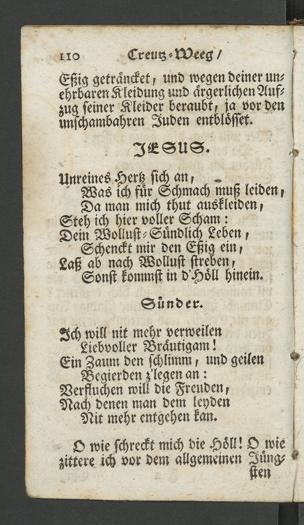 110 Creutz-Weeg/
Eßig geträncket, und wegen deiner un-
ehrbaren Kleidung und ärgerlichen Auf-
zug seiner Kleider beraubt, ja vor den
unschambahren Juden entblösset.
JESUS.
Unreines Hertz sich an,
Was ich für Schmach muß leiden,
Da man mich thut auskleiden,
Steh ich hier voller Scham:
Dein Wollust-Sündlich Leben,
Schenckt mir den Eßig ein,
Laß ab nach Wollust streben,
Sonst kommst in d'Höll hinein.
Sünder.
Ich will nit mehr verweilen
Liebvoller Bräutigam!
Ein Zaum den schlimm, und geilen
Begierden z'legen an:
Verfluchen will die Freuden,
Nach denen man dem leyden
Nit mehr entgehen kan.
O wie schreckt mich die Höll! O wie
zittere ich vor dem allgemeinen Jüng-
sten